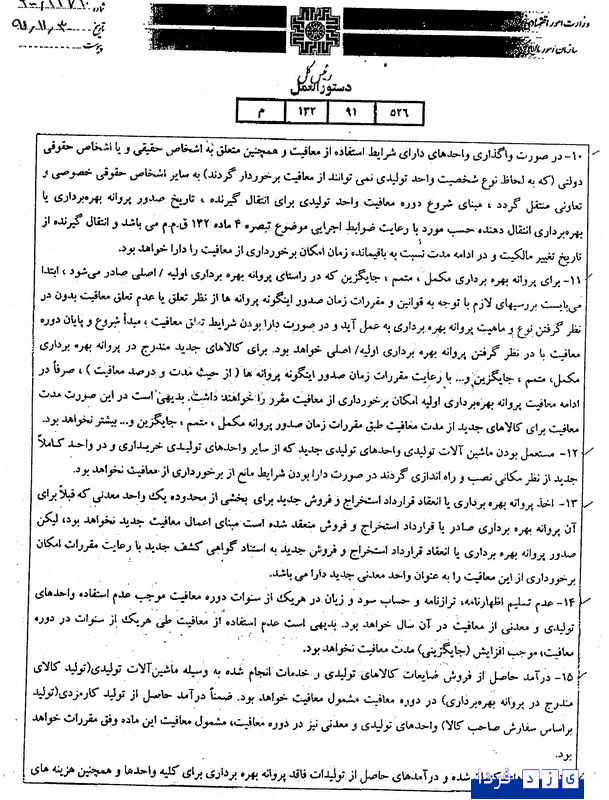 شماره
تاریخ
پیوست
وزارت امور اقتصادی
سازمان امور مالیاتی
رئیس کل
دستورالعمل
۵۲۶ ۹۱ ۱۳۲ م
۱۰- در صورت واگذاری واحدهای دارای شرایط استفاده از معافیت و همچنین متعلق به اشخاص حقیقی و یا اشخاص حقوقی
دولتی (که به لحاظ نوع شخصیت واحد تولیدی نمی توانند از معافیت برخوردار گردند) به سایر اشخاص حقوقی خصوصی و
تعاونی منتقل گردد ، مبنای شروع دوره معافیت واحد تولیدی برای انتقال گیرنده ، تاریخ صدور پروانه بهره‌برداری یا
بهره‌برداری انتقال دهنده حسب مورد با رعایت ضوابط اجرایی موضوع تبصره ۴ ماده ۱۳۲ ق.م.م می باشد و انتقال گیرنده از
تاریخ تغییر مالکیت و در ادامه مدت نسبت به باقیمانده زمان امکان برخورداری از معافیت را دارا خواهد بود.
۱۱- برای پروانه بهره برداری مکمل ، متمم ، جایگزین که در راستای پروانه بهره برداری اولیه / اصلی صادر می‌شود ، ابتدا
می‌بایست بررسیهای لازم با توجه به قوانین و مقررات زمان صدور اینگونه پروانه ها از نظر تعلق یا عدم تعلق معافیت بدون در
نظر گرفتن نوع و ماهیت پروانه بهره برداری به عمل آید و در صورت دارا بودن شرایط تعلق معافیت ، مبدأ شروع و پایان دوره
معافیت با در نظر گرفتن پروانه بهره برداری اولیه/ اصلی خواهد بود. برای کالاهای جدید مندرج در پروانه بهره برداری
مکمل، متمم ، جایگزین و... با رعایت مقررات زمان صدور اینگونه پروانه ها ( از حیث مدت و درصد معافیت ) ، صرفاً در
ادامه معافیت پروانه بهره‌برداری اولیه امکان برخورداری از معافیت مقرر را خواهند داشت. بدیهی است در این صورت مدت
معافیت برای کالاهای جدید از مدت معافیت طبق مقررات زمان صدور پروانه مکمل ، متمم ، جایگزین و... بیشتر نخواهد بود.
۱۲- مستعمل بودن ماشین آلات تولیدی واحدهای تولیدی جدید که از سایر واحدهای تولیدی خریداری و در واحد کاملاً
جدید از نظر مکانی نصب و راه اندازی گردند در صورت دارا بودن شرایط مانع از برخورداری از معافیت نخواهد بود.
۱۳- اخذ پروانه بهره برداری یا انعقاد قرارداد استخراج و فروش جدید برای بخشی از محدوده یک واحد معدنی که قبلاً برای
آن پروانه بهره برداری صادر یا قرارداد استخراج و فروش منعقد شده است مبنای اعمال معافیت جدید نخواهد بود، لیکن
صدور پروانه بهره برداری یا انعقاد قرارداد استخراج و فروش جدید به استناد گواهی کشف جدید با رعایت مقررات امکان
برخورداری از این معافیت را به عنوان واحد معدنی جدید دارا می باشد.
۱۴- عدم تسلیم اظهارنامه، ترازنامه و حساب سود و زیان در هریک از سنوات دوره معافیت موجب عدم استفاده واحدهای
تولیدی و معدنی از معافیت در آن سال خواهد بود. بدیهی است عدم استفاده از معافیت طی هریک از سنوات در دوره
معافیت، موجب افزایش (جایگزینی) مدت معافیت نخواهد بود.
۱۵- درآمد حاصل از فروش ضایعات کالاهای تولیدی و خدمات انجام شده به وسیله ماشین‌آلات تولیدی(تولید کالای
مندرج در پروانه بهره‌برداری) در دوره معافیت مشمول معافیت خواهد بود. ضمناً درآمد حاصل از تولید کارمزدی(تولید
براساس سفارش صاحب کالا) واحدهای تولیدی و معدنی نیز در دوره معافیت، مشمول معافیت این ماده وفق مقررات خواهد
بود.
شده و درآمدهای حاصل از تولیدات فاقد پروانه بهره برداری برای کلیه واحدها و همچنین هزینه های
یزد فردا